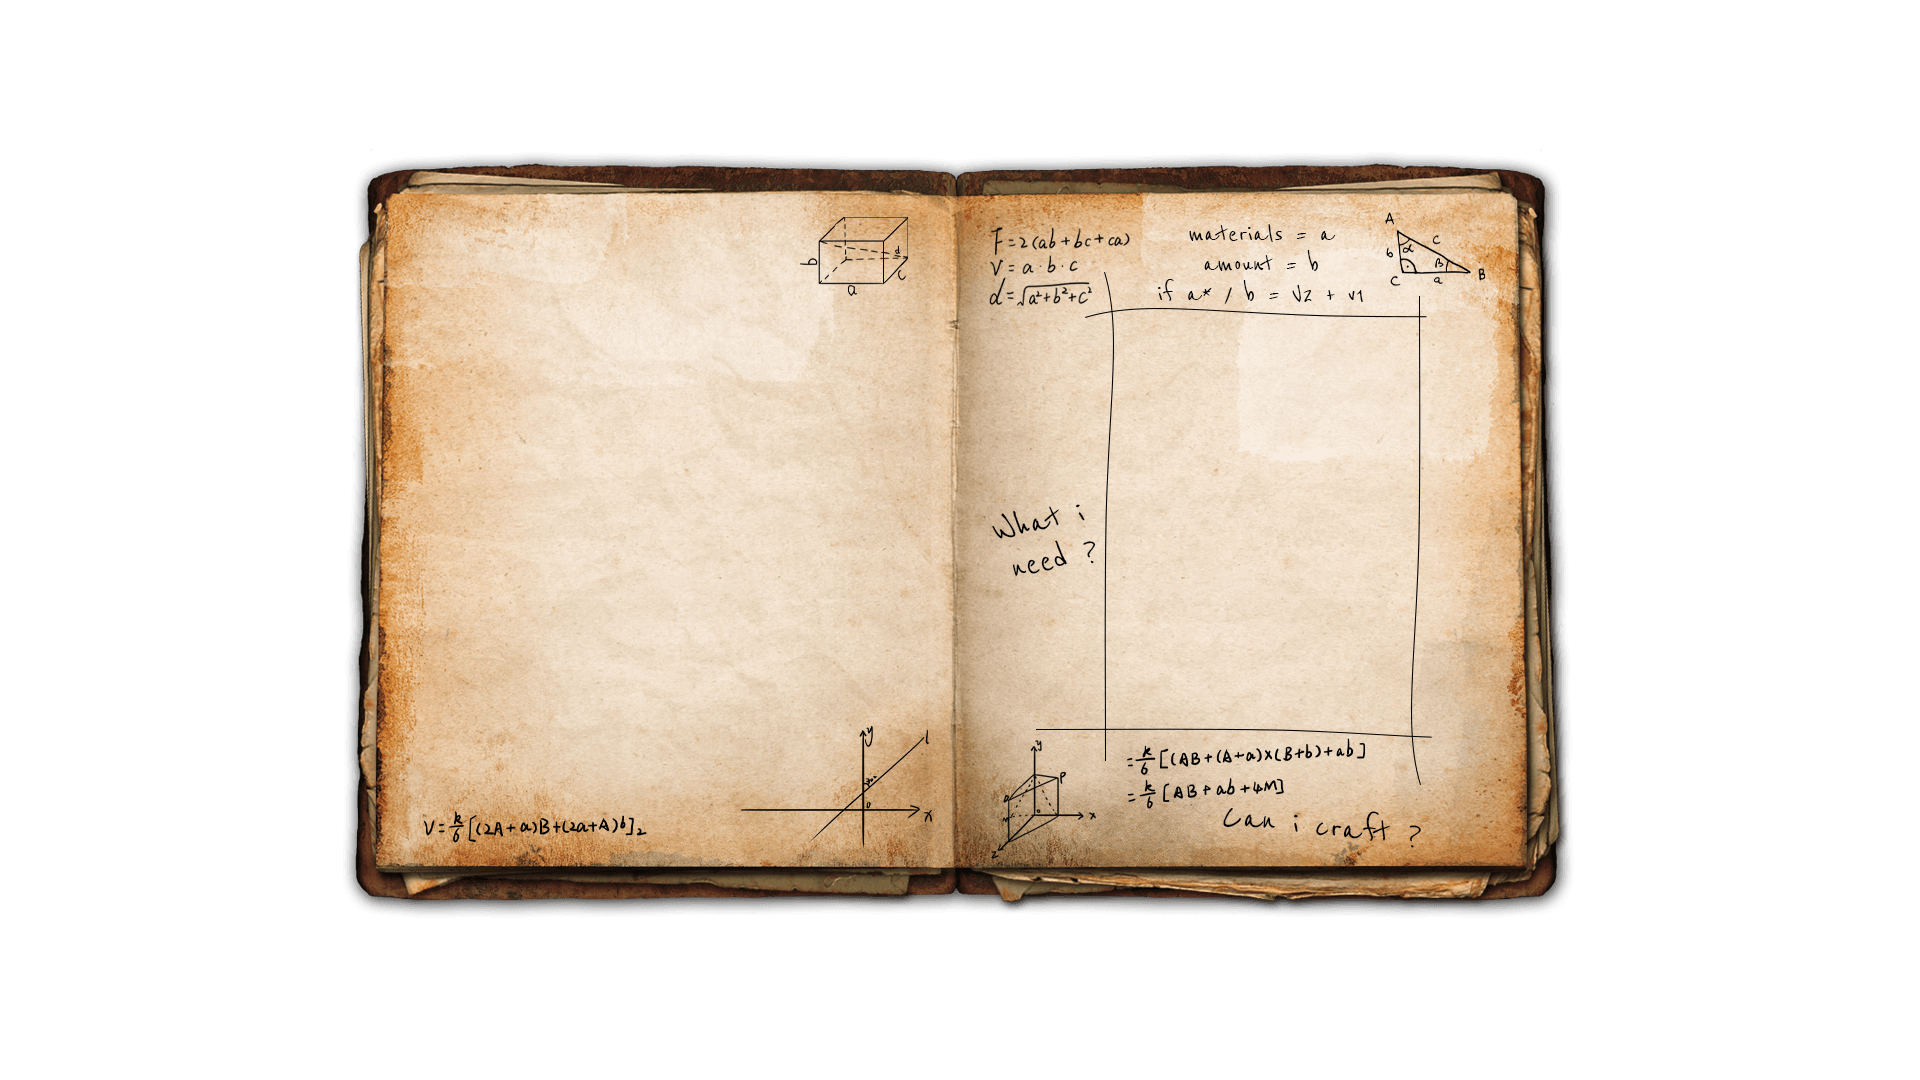 b
a
c
d
V = k/6 [(2A+a)B+(2a+A)b]2
y
l
30°
0
x
F = 2(ab+bc+ca)
V = a · b · c
d = √a²+b²+c²
materials = a
amount = b
if a* / b = √2 + √1
A
b
α
c
β
B
C
a
What i
need ?
y
P
x
z
= k/6 [(AB+(A+a)x(B+b)+ab]
= k/6 [AB+ab+4M]
Can i craft ?